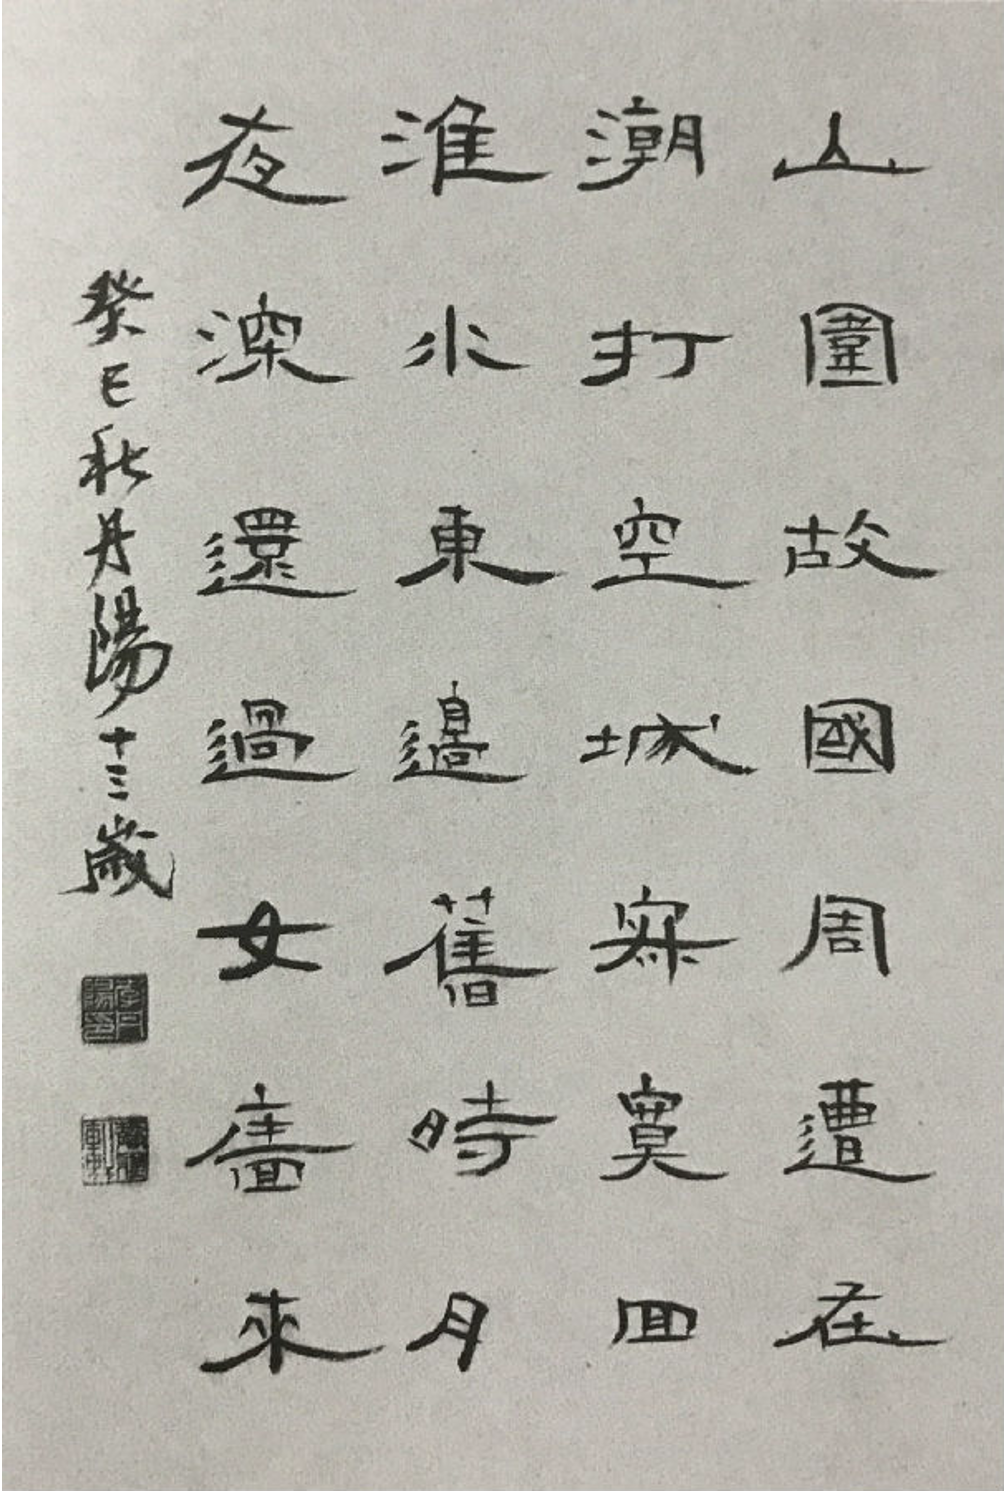 山圍故國周遭在
潮打空城寂寞回
淮水東邊舊時月
夜深還過女廧來
癸巳秋丹陽十三歲